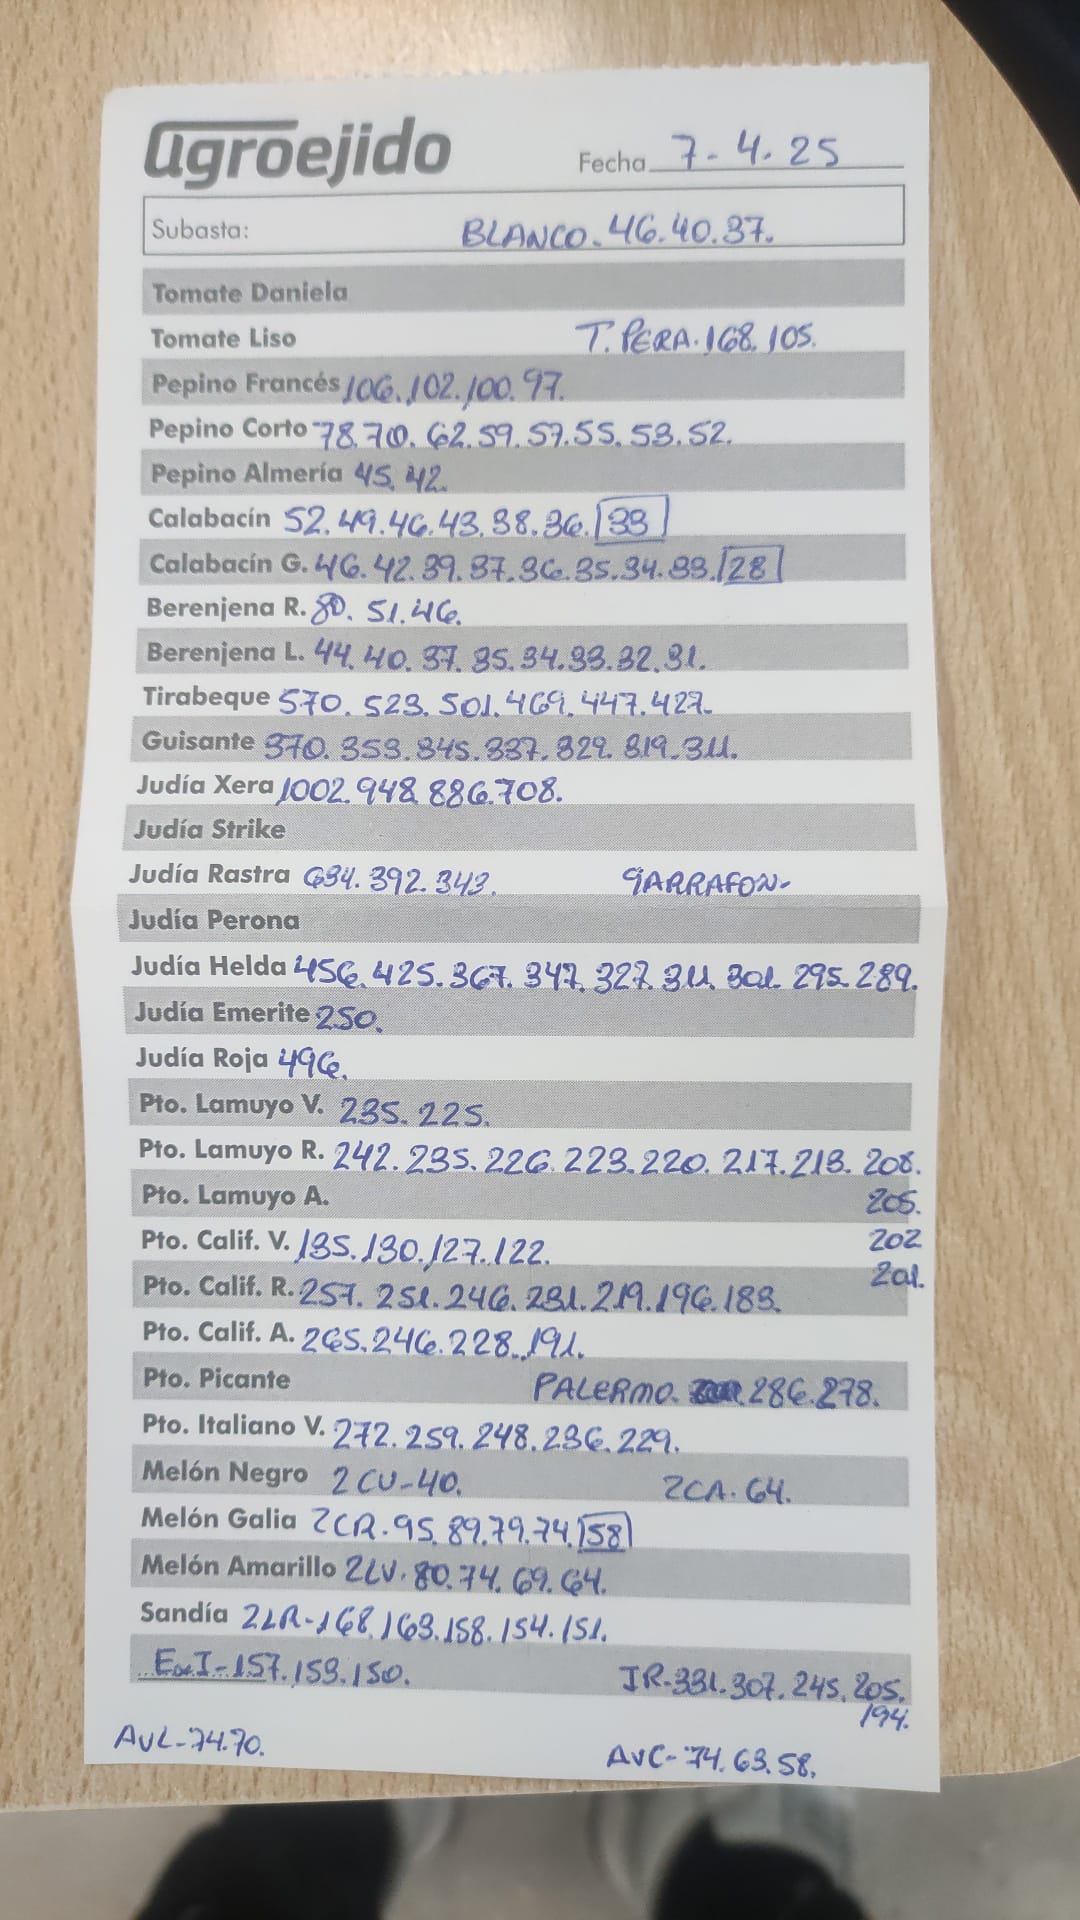 agroejido
Fecha 7-4.25
Subasta: BLANCO. 46.40.37.
Tomate Daniela
Tomate Liso T. PERA. 168. 105.
Pepino Francés 106. 102. 100. 97.
Pepino Corto 78.70. 62.59.57.55.53.52.
Pepino Almería 45. 42.
Calabacín 52.49.46.43.38.36. 33
Calabacín G. 46.42.39.37.36.35.34.33. 28
Berenjena R. 80. 51.46.
Berenjena L. 44.40.37.35.34.33.32.31.
Tirabeque 570. 523. 501. 469. 447. 427.
Guisante 370. 353. 345. 337. 329. 319. 311.
Judía Xera 1002. 948. 886. 708.
Judía Strike
Judía Rastra 634. 392. 343. GARRAFON-
Judía Perona
Judía Helda 456. 425. 367. 347. 327. 311. 301. 295. 289.
Judía Emerite 250.
Judía Roja 496.
Pto. Lamuyo V. 235. 225.
Pto. Lamuyo R. 242. 235. 226. 223. 220. 217. 213. 208.
Pto. Lamuyo A. 205.
Pto. Calif. V. 135. 130. 127. 122. 202
201.
Pto. Calif. R. 257. 251. 246. 231. 219. 196. 183.
Pto. Calif. A. 265. 246. 228. 191.
Pto. Picante PALERMO. 286. 278.
Pto. Italiano V. 272. 259. 248. 236. 229.
Melón Negro 2CU-40. 2CA. 64.
Melón Galia 2CR. 95. 89. 79. 74. 58
Melón Amarillo 2LV. 80. 74. 69. 64.
Sandía 2LR-168. 163. 158. 154. 151.
ExI-157. 153. 150. IR-331. 307. 245. 205.
194.
AVL-74.70. AVC-74. 63. 58.